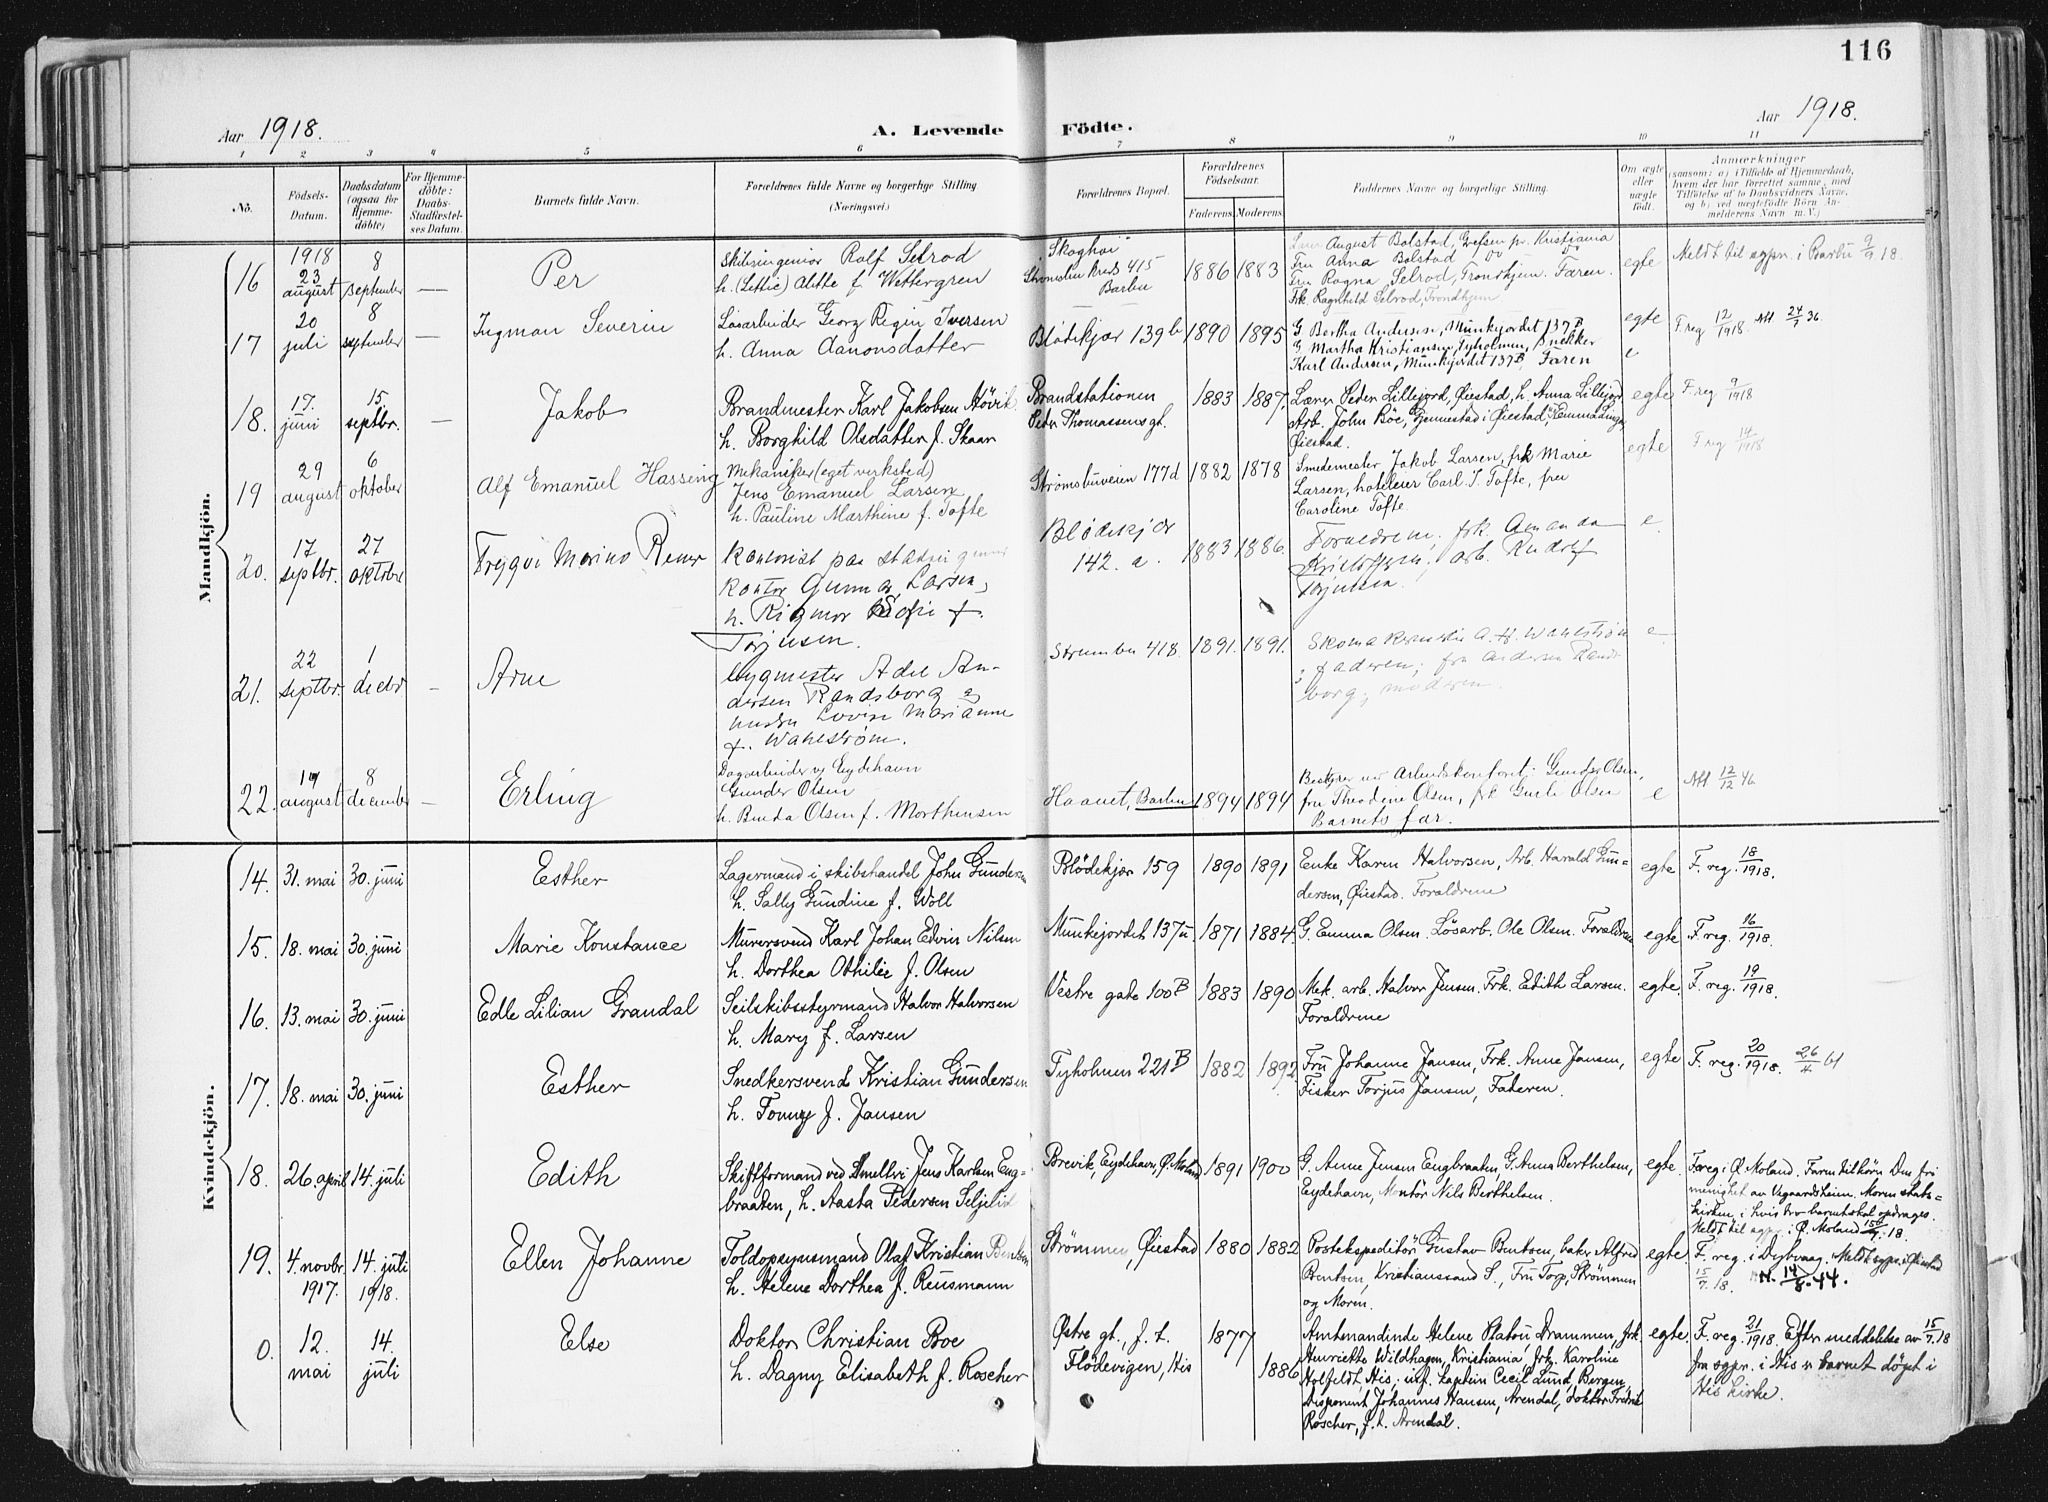 116
Aar 1918.
A. Levende Födte.
Aar 1918.
1 2 3 4 5 6 7 8 9 10 11
No.
Födsels-Datum.
Daabsdatum (ogsaa for Hjemme-döbte)
For Hjemme-döbte: Daabs-Stadfæstelses Datum.
Barnets fulde Navn.
Forældrenes fulde Navne og borgerlige Stilling (Næringsvei.)
Forældrenes Bopæl.
Forældrenes Födselsaar.
Faderens. Moderens.
Faddernes Navne og borgerlige Stilling.
Om ægte eller uægte födt.
Anmærkninger
(saasom: a) i Tilfælde af Hjemmedaab, hvem der har forrettet samme, med Tilföielse af to Daabsvidners Navne, og b) ved uægtefödte Börn Anmelderens Navn m. V.)
Mandkjön.
16 1918 23 august 8 september — Per
Skibsingeniør Rolf Selrod
h. (Lettie) Alette f. Wettergren
Skoghøi
Strømsbu Kreds 415
Barbu
1886 1883
August Bolstad, Grefsen pr. Kristiania
Fru Anna Bolstad do
Fru Ragna Selrod, Trondhjem. Faren.
Frk. Ragnhild Selrod, Trondhjem
egte
Meldt til sgpr. i Barbu 9/9 18.
17 20 juli 8 september — Ingman Severin
Løsarbeider Georg Regin Iversen
h. Anna Aanonsdatter
Blødekjær 139 b 1890 1895
G. Bertha Andersen, Munkejordet 137 B
G. Martha Kristiansen, Tyholmen, Snekker
Karl Andersen, Munkejordet 137 B, Faren
egte
e
F. reg. 12/1918. Att 24/7 36.
18. 17. juni 15. septbr. — Jakob
Brandmester Karl Jakobsen Høvik
h. Borghild Olsdatter f. Skaar
Brandstationen
Peder Thomassensgt.
1883 1887.
Lærer Peder Lillejord, Øiestad, h. Anna Lillejord
Arb. John Böe, Gjennestad i Øiestad,
Øiestad.
egte F. reg 9/1918
19 29 august 6 oktober Alf Emanuel Hassing
Mekaniker (eget verksted)
Jens Emanuel Larsen
h. Pauline Marthine f. Tofte
Strømsbuveien 177d 1882 1878
Smedemester Jakob Larsen, frk Marie
Larsen, hoteleier Carl I. Tofte, fru
Caroline Tofte
egte F reg 14/1918
20. 17 septbr. 27 oktober
Kontorist paa stadsingeniør
kontor Gunnar Larsen,
h. Rigmor Sofie f.
Torjusen.
Blødekjær
142. a. 1883 1886.
Forældrene, frk. Amanda
Kristoffersen, arb. Rudolf
Torjusen.
e.
21. 22 septbr. 1 decbr — Arne
bygmester Adel An-
dersen Randsborg og
hustru Lovise Marianne
f. Wahlstrøm.
Strømsbu 418. 1891. 1891.
Skomakermester A. H. Wahlstrøm
; faderen; fru Andersen Rands-
borg; moderen.
e
22. 14 august 8 december — Erling
Dagarbeider v/ Eydehavn
Gunder Olsen
h. Benda Olsen f. Morthensen
Haavet, Barbu 1894 1894
Bestyrer ver Arbeidskontoret: Gunder Olsen,
fru Theodine Olsen, frk Gurli Olsen
Barnets far.
e Att 12/12 46
Kvindekjön.
14. 31. mai 30. juni Esther
Lagermand i skibshandel John Gundersen
h. Sally Gundine f. Woll
Blödekjær 159 1890 1891
Enke Karen Halvorsen, Arb. Harald Gun=
dersen, Øiestad. Forældrene
egte F. reg. 18/1918.
15. 18. mai 30. juni Marie Konstance
Murersvend Karl Johan Edvin Nilsen
h. Dorthea Othilie f. Olsen
Munkejordet 137u 1871 1884.
G. Emma Olsen. Lösarb. Ole Olsen. Forældrene
egte F. reg. 16/1918.
16. 13. mai 30. juni Edle Lilian Grandal
Seilskibsstyrmand Halvor Halvorsen
h. Mary f. Larsen
Vestre gate 100 B 1883 1890
Mek. arb. Halvor Jensen. Frk. Edith Larsen.
Forældrene
egte. F. reg. 19/1918.
17. 18. mai 30. juni Esther
Snedkersvend Kristian Gundersen
h. Tonny f. Jansen
Tyholmen 221 B 1882 1892
Fru Johanne Jansen, Frk. Anne Jansen,
Fisker Torjus Jansen, Faderen.
egte F. reg. 20/1918. 26/4 61
18. 26. april 14. juli Edith
Skiftformand ved Smeltev. Jens Karlsen Eng-
braaten, h. Aasta Pedersen Seljelid
Brevik, Eydehavn, Ø. Moland 1891 1900
G. Anne Jensen Engbraaten, G. Anna Berthelsen,
Eydehavn, Montör Nils Berthelsen.
egte.
F. reg i Ø. Moland. Faren tilhörer Den fri
menighet av Vegaardsheien. Moren stats=
kirken, i hvis tro barnet skal opdrages.
Meldt til sgpr. i Ø. Moland 15/7.18.
19. 4. novbr. 1917. 14. juli 1918. Ellen Johanne
Toldopsynsmand Olaf Kristian Bentsen
h. Helene Dorthea f. Reusmann
Strömmen, Øiestad 1880 1882
Postekspeditör Gustav Bentsen, baker Alfred
Bentsen, Kristianssand S., Fru Torp, Strömmen
og Moren.
egte.
F. reg. i Dybvaag. Meldt sgpr. i Øiestad
15/7. 18. N. 14/8.44.
0. 12. mai 14. juli Else
Doktor Christian Boe
h. Dagny Elisabeth f. Roscher
Østre gt., f. t.
Flödevigen, His
1877 1886
Amtmandinde Helene Platou, Drammen, frk.
Henriette Wildhagen, Kristiania, frk. Karoline
Holfeldt, His, inf. kaptein Cecil Lund, Bergen,
Disponent Johannes Hansen, Arendal, doktor Fredrik
Roscher, f. t. Arendal.
egte
F. reg. 21/1918. Efter meddelelse av 15/7.18
fra sgpr. i His er barnet döpt i
His kirke.